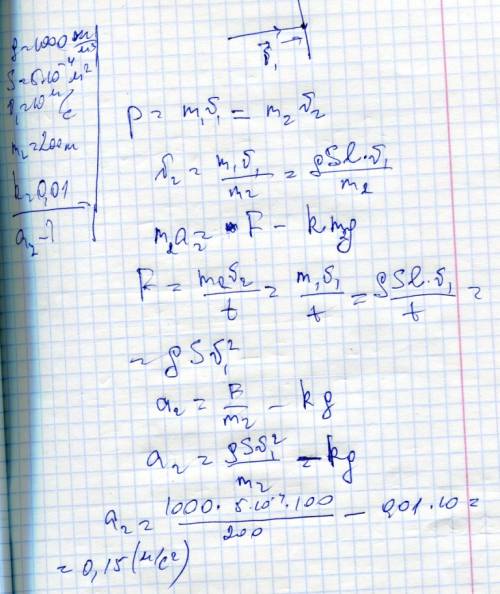 ρ=1000 кг/м³
S=5·10⁻⁴ м²
v₁=10 м/с
m₂=200
k=0,01
a₂-?
v⃗₁
p = m₁v₁ = m₂v₂
v₂ = m₁v₁/m₂ = ρSl·v₁/m₂
m₂a₂ = F - km₂g
F = m₂v₂/t = m₁v₁/t = ρSl·v₁/t =
= ρSv₁²
a₂ = F/m₂ - kg
a₂ = ρSv₁²/m₂ - kg
a₂ = 1000·5·10⁻⁴·100/200 - 0,01·10 =
= 0,15 (м/с²)